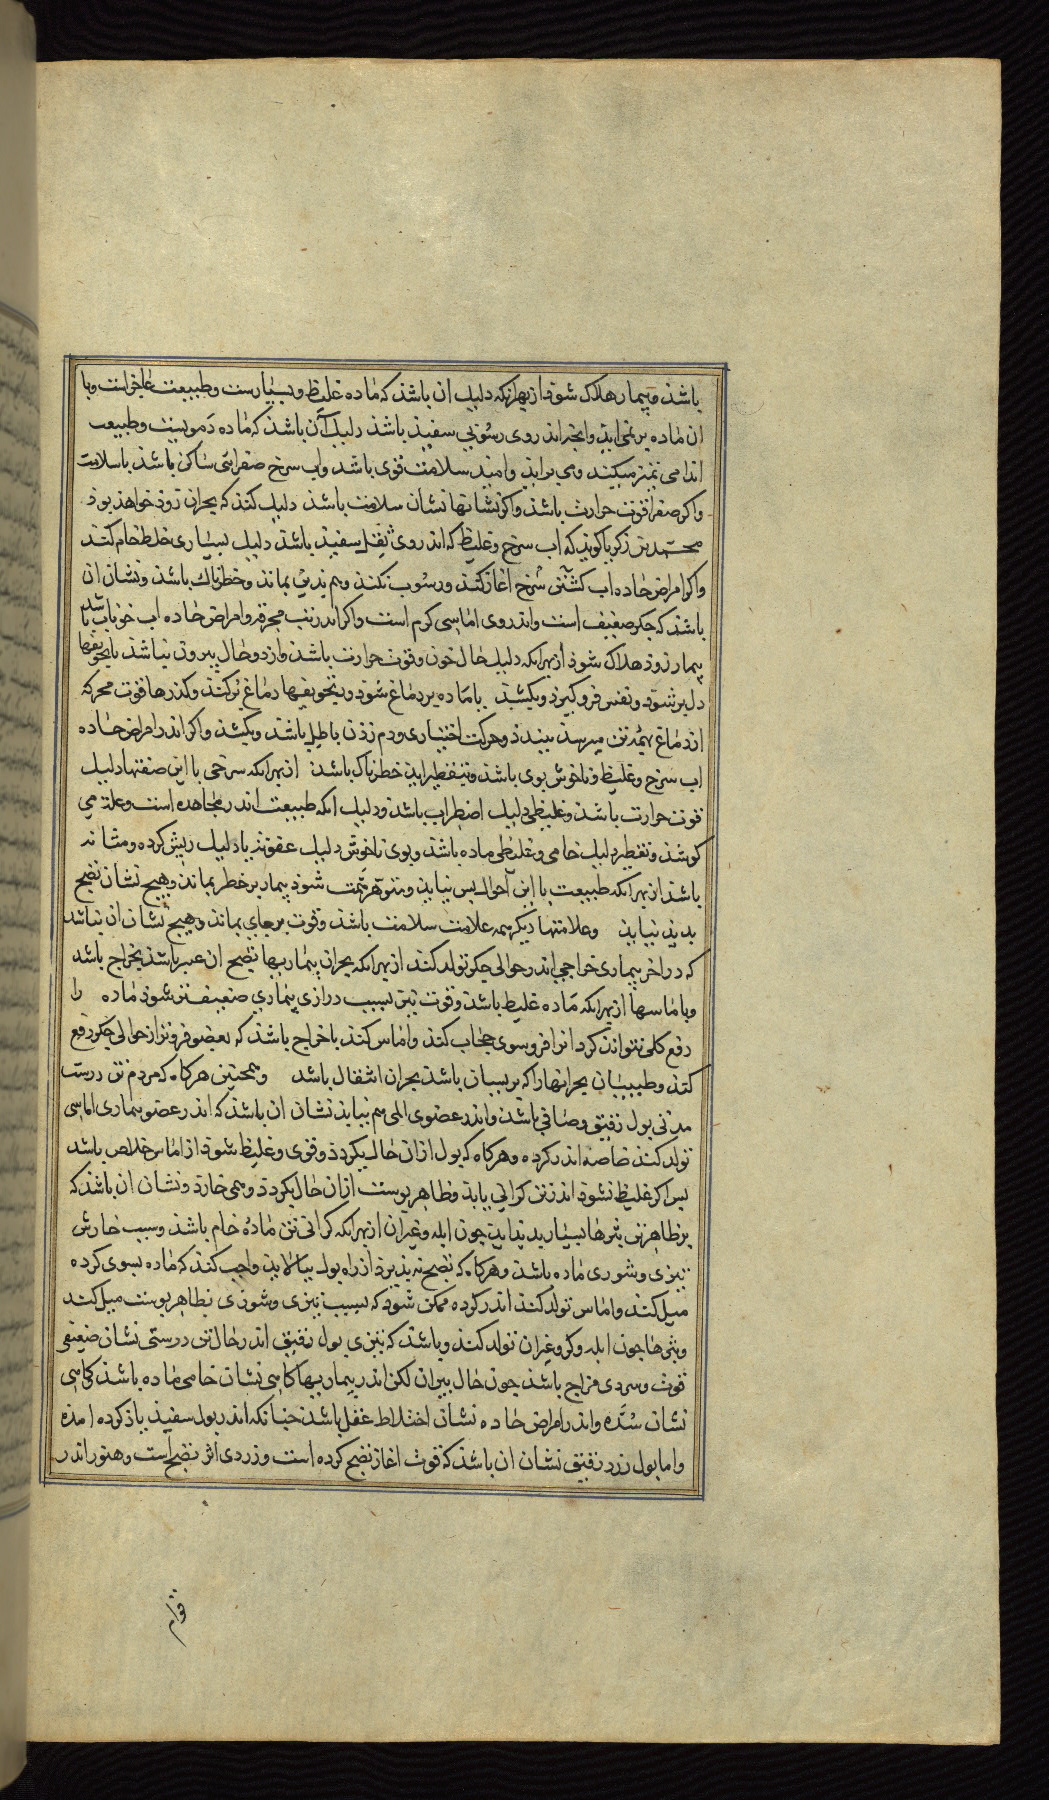 باشذ و بیمار هلاک شوذ از بهر انکه دلیل ان باشذ که ماده غلیظ و بسیارست و طبیعت عاجز است و با
ان ماده بر نمی ایذ وانجه اندر روی رسوبی سفیذ باشذ دلیل آن باشذ که ماده دمویست و طبیعت
اندامی تمیز میکند و می براید و امید سلامت قوی باشد و اب سرخ صفرائی ساکن باشذ با سلامت
و اکر صفرا قوت حرارت باشذ و اکر نشانها نشان سلامت باشذ دلیل کند که بحران زوذ خواهذ بوذ
محمد بن زکریا کویذ که اب سرخ و غلیظ که اندر وی ثفل سفیذ باشذ دلیل بسیاری خلط خام کند
و اکر امراض حاده اب کشنی سرخ اغاز کند و رسوب نکند و هم بذین بماند و خطرناک باشذ و نشان ان
باشذ که جکر ضعیف است و اندر وی اماسی کرم است و اکر اندر تب محرقه و امراض حاده اب خوناب باشد
بیمار زوذ هلاک شوذ از بهر انکه دلیل حال خون و قوت حرارت باشذ و از دو حال بیرون نباشذ یا تجویفها
دل بر شوذ و نفس فرو کیرذ و بکشذ یا ماده بر دماغ شوذ و تجویفها دماغ بر کند و کذرها قوت محرکه
از دماغ بهمه تن میرسد ببندذ و حرکت اختیاری و دم زدن باطل باشذ و بکشذ و اکر اندر امراض حاده
اب سرخ و غلیظ و ناخوش بوی باشذ و بتقطیر ایذ خطرناک باشذ از بهر انکه سرخی با این صفتها دلیل
قوت حرارت باشذ و غلیظی دلیل اضطراب باشذ و دلیل انکه طبیعت اندر مجاهده است و علت می
کوشذ و تقطیر دلیل خامی و غلیظی ماده باشذ و بوی ناخوش دلیل عفونت یا دلیل ریش کرده و مثانه
باشذ از بهر انکه طبیعت با این احوال بس نیاید و شوذ بیمار بر خطر بماند و هیج نشان نضج
بدید نیاید و علامتها دیکر همه علامت سلامت باشذ و قوت بر جای بماند و هیج نشان ان نباشد
که در اخر بیماری خراجی اندر حوالی جکر تولد کند از بهر انکه بحران بیماریها نضج ان عسر باشذ بخراج باشد
و باماسها از بهر انکه ماده غلیظ باشذ و قوت تن بسبب درازی بیماری ضعیف تر شوذ ماده را
دفع کلی نتواند کرد انرا فروسوی حجاب کند و اماس کند یا خراج باشذ که بعضو فروتر از حوالی جکر دفع
کند و طبیبان بحرانها را که بر بسبان باشذ بحران اشقال باشد و همجنین هرکاه که مردم تن درست
مدتی بول رقیق و صافی باشذ و اندر عضوی المی هم نیاید نشان ان باشذ که اندر عضو بیماری اماسی
تولد کند خاصه اندر کرده و هرکاه که بول از ان حال بکردذ و قوی و غلیظ شوذ از اماس خلاص باشد
بس اکر غلیظ نشوذ اندر تن کرانی یابد و ظاهر بوست از ان حال بکردذ و همی خارد و نشان ان باشذ که
بر ظاهر تن بثرها بسیار بدید اید جون ابله و غیر ان از بهر انکه کرانی تن ماده خام باشذ و سبب خارش
تیزی و شوری ماده باشذ و هرکاه که نضج نبذیرد از راه بول بیالاید واجب کند که ماده بسوی کرده
میل کند و اماس تولد کند اندر کرده ممکن شوذ که بسبب تیزی و شوری بظاهر بوست میل کند
و بثرها جون ابله و کر و غیر ان تولد کند و باشذ که تیزی بول رقیق اندر حال تن درستی نشان ضعیفی
قوت و سردی مزاج باشذ جون حال بیران لکن اندر بیماریها کاهی نشان خامی ماده باشذ کاهی
نشان سُدّه و اندر امراض حاده نشان اختلاط عقل باشذ جنانکه اندر بول سفیذ یاذ کرده امذه
و اما بول زرد رقیق نشان ان باشذ که قوت اغاز نضج کرده است و زردی اثر نضج است و هنوز اندر
قوام